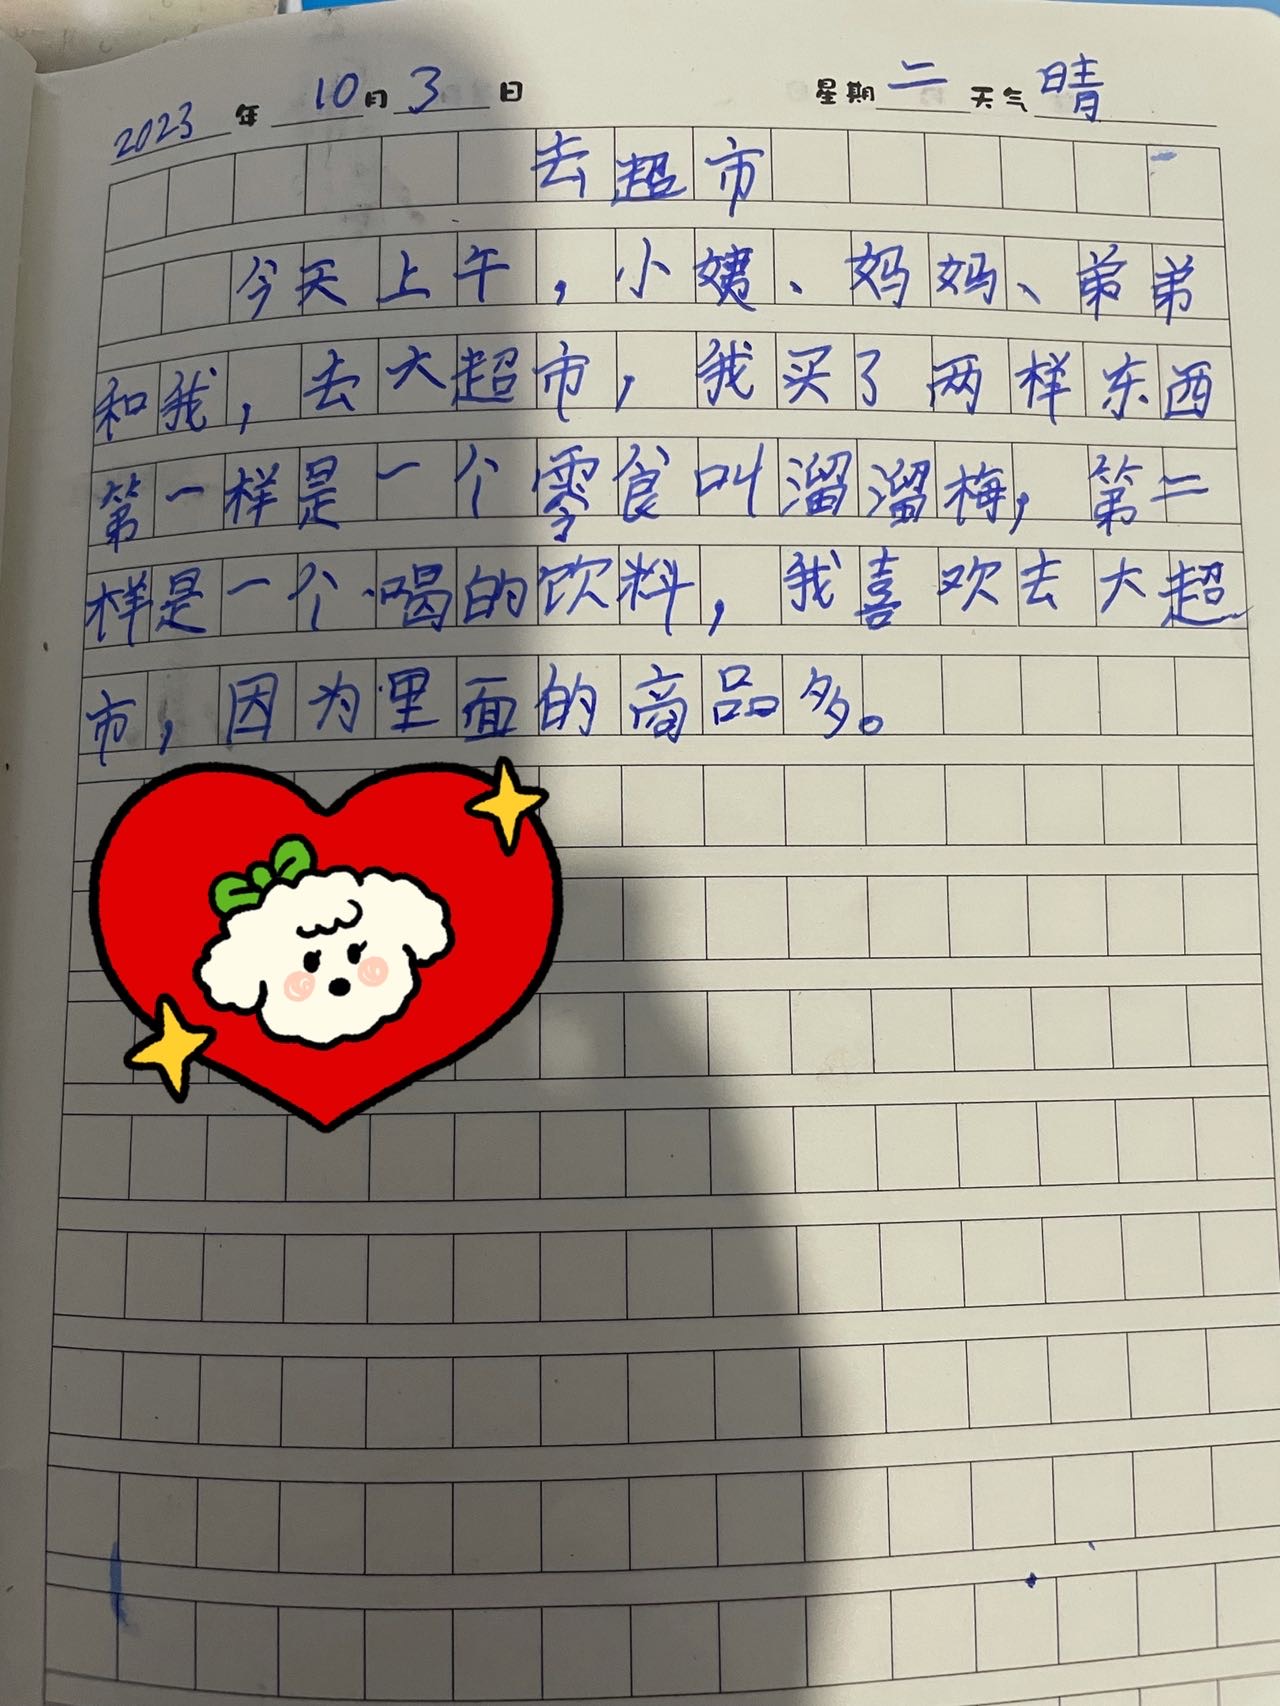 2023年10月3日 星期二 天气晴
去超市
今天上午，小姨、妈妈、弟弟
和我，去大超市，我买了两样东西
第一样是一个零食叫溜溜梅，第二
样是一个喝的饮料，我喜欢去大超
市，因为里面的商品多。